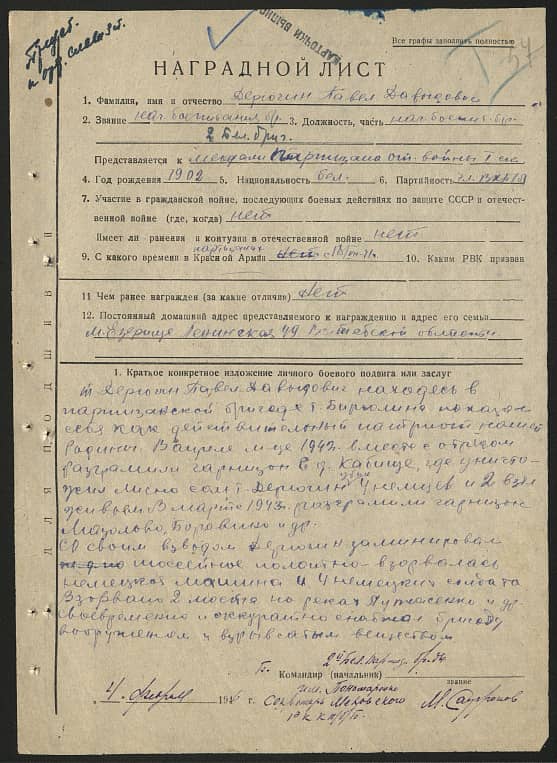 КАРТОЧКИ ВЫПИС
Все графы заполнять полностью
НАГРАДНОЙ ЛИСТ
1. Фамилия, имя и отчество Дерюгин Павел Давыдович
2. Звание нач. боепитания бр. 3. Должность, часть нач. боепит. бр.
2 Бел. бриг.
Представляется к медали Партизана от. войны I ст
4. Год рождения 1902 5. Национальность бел. 6. Партийность чл. ВКП(б)
7. Участие в гражданской войне, последующих боевых действиях по защите СССР и отечест-
венной войне (где, когда) нет
Имеет ли ранения и контузии в отечественной войне нет
партизанах
9. С какого времени в Красной Армии 10. Каким РВК призван
11 Чем ранее награжден (за какие отличия) нет
12. Постоянный домашний адрес представляемого к награждению и адрес его семьи
м. Езерище Ленинская 49 Витебской области
ДЛЯ ПОДШИВКИ
1. Краткое конкретное изложение личного боевого подвига или заслуг
т. Дерюгин Павел Давыдович находясь в
партизанской бригаде т. Бирюлина показал
себя как действительный патриот нашей
Родины. В апреле м-це 1943 г. вместе с отрядом
разгромили гарнизон в д. Кабище, где уничто-
жил лично сам т. Дерюгин 4 немцев и 2 взял
живыми В марте 1943 г. разгромили гарнизон
и др.
Со своим взводом Дерюгин заминировал
шоссейное полотно - взорвалась
немецкая машина и 4 немецких солдата
Взорвано 2 моста на реках и др.
Своевременно и аккуратно снабжал бригаду
вооружением и взрывчатым веществом
2й Бел. парт. бр-ды
Командир (начальник)
звание
им. Пономаренко
4 февраля 194 г. Секретарь Меховского М. Сафронов
РК КП(б)Б.